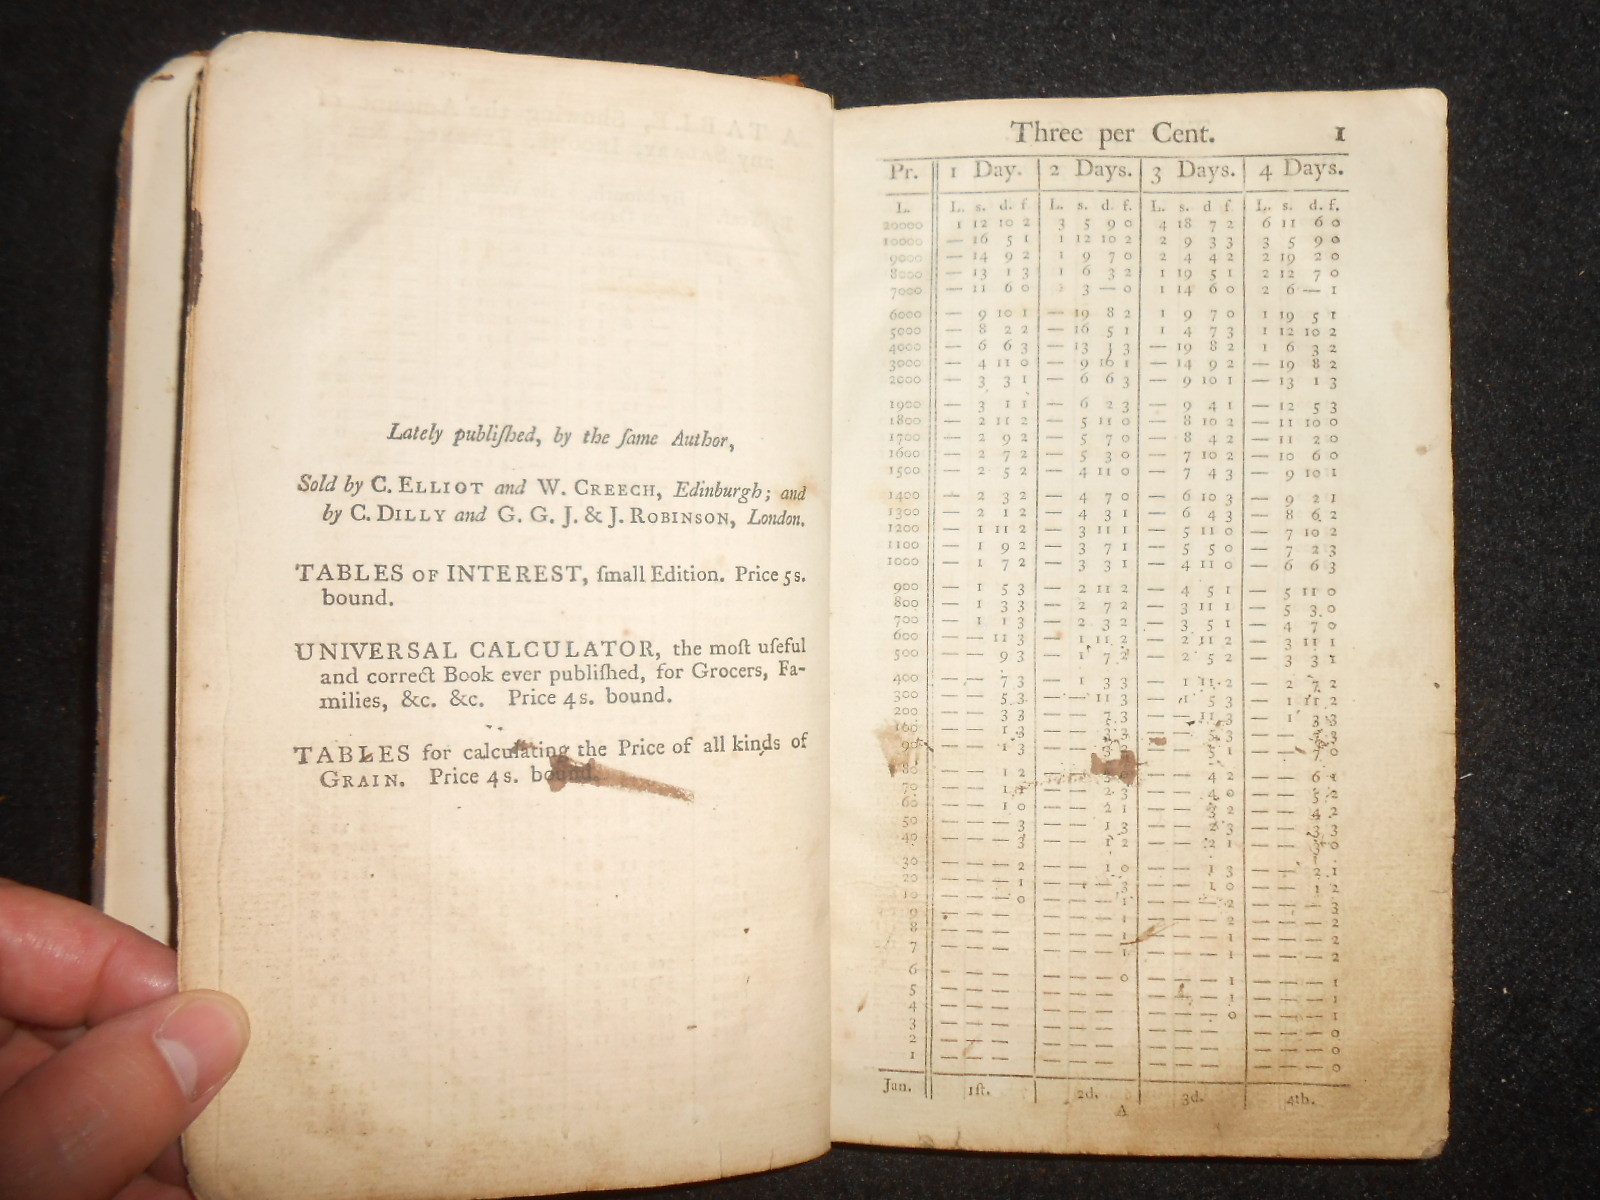 Lately publiſhed, by the ſame Author,
Sold by C. ELLIOT and W. CREECH, Edinburgh; and
by C. DILLY and G. G. J. & J. ROBINSON, London.
TABLES OF INTEREST, ſmall Edition. Price 5s.
bound.
UNIVERSAL CALCULATOR, the moſt uſeful
and correct Book ever publiſhed, for Grocers, Fa-
milies, &c. &c. Price 4s. bound.
TABLES for calculating the Price of all kinds of
GRAIN. Price 4s. bound.
Three per Cent. 1
Pr. 1 Day. 2 Days. 3 Days. 4 Days.
L. L. s. d. f. L. s. d. f. L. s. d f. L. s. d. f.
20000 1 12 10 2 3 5 9 0 4 18 7 2 6 11 6 0
10000 — 16 5 1 1 12 10 2 2 9 3 3 3 5 9 0
9000 — 14 9 2 1 9 7 0 2 4 4 2 2 19 2 0
8000 — 13 1 3 1 6 3 2 1 19 5 1 2 12 7 0
7000 — 11 6 0 3 — 0 1 14 6 0 2 6 — 1
6000 — 9 10 1 — 19 8 2 1 9 7 0 1 19 5 1
5000 — 8 2 2 — 16 5 1 1 4 7 3 1 12 10 2
4000 — 6 6 3 — 13 1 3 — 19 8 2 1 6 3 2
3000 — 4 11 0 — 9 10 1 — 14 9 2 — 19 8 2
2000 — 3 3 1 — 6 6 3 — 9 10 1 — 13 1 3
1900 — 3 1 1 — 6 2 3 — 9 4 1 — 12 5 3
1800 — 2 11 2 — 5 11 0 — 8 10 2 — 11 10 0
1700 — 2 9 2 — 5 7 0 — 8 4 2 — 11 2 0
1600 — 2 7 2 — 5 3 0 — 7 10 2 — 10 6 0
1500 — 2 5 2 — 4 11 0 — 7 4 3 — 9 10 1
1400 — 2 3 2 — 4 7 0 — 6 10 3 — 9 2 1
1300 — 2 1 2 — 4 3 1 — 6 4 3 — 8 6 2
1200 — 1 11 2 — 3 11 1 — 5 11 0 — 7 10 2
1100 — 1 9 2 — 3 7 1 — 5 5 0 — 7 2 3
1000 — 1 7 2 — 3 3 1 — 4 11 0 — 6 6 3
900 — 1 5 3 — 2 11 2 — 4 5 1 — 5 11 0
800 — 1 3 3 — 2 7 2 — 3 11 1 — 5 3 0
700 — 1 1 3 — 2 3 2 — 3 5 1 — 4 7 0
600 — — 11 3 — 1 11 2 — 2 11 2 — 3 11 1
500 — — 9 3 — 1 7 2 — 2 5 2 — 3 3 1
400 — — 7 3 — 1 3 3 — 1 11 2 — 2 7 2
300 — — 5 3 — — 11 3 — 1 5 3 — 1 11 2
200 — — 3 3 — — 7 3 — — 11 3 — 1 3 3
100 — — 1 3 — — 3 3 — — 5 3 — — 7 3
90 — — 1 3 — — — — 5 1 — — 7 0
80 — — 1 2 — — — — 4 2 — — 6 1
70 — — 1 1 — — 2 3 — — 4 0 — — 5 2
60 — — 1 0 — — 2 1 — — 3 2 — — 4 2
50 — — — 3 — — 1 3 — — 2 3 — — 3 3
40 — — — 3 — — 1 2 — — 2 1 — — 3 0
30 — — — 2 — — 1 0 — — 1 3 — — 2 1
20 — — — 1 — — — 3 — — 1 0 — — 1 2
10 — — — 0 — — — 1 — — — 2 — — — 3
9 — — — — — — 1 — — — 2 — — — 2
8 — — — — — — 1 — — — 1 — — — 2
7 — — — — — — 1 — — — 1 — — — 2
6 — — — — — — 0 — — — 1 — — — 1
5 — — — — — — — — — 1 — — — 1
4 — — — — — — — — — 0 — — — 1
3 — — — — — — — — — — — — 0
2 — — — — — — — — — — — — 0
1 — — — — — — — — — — — — 0
Jan. 1ſt. 2d. 3d. 4th.
A